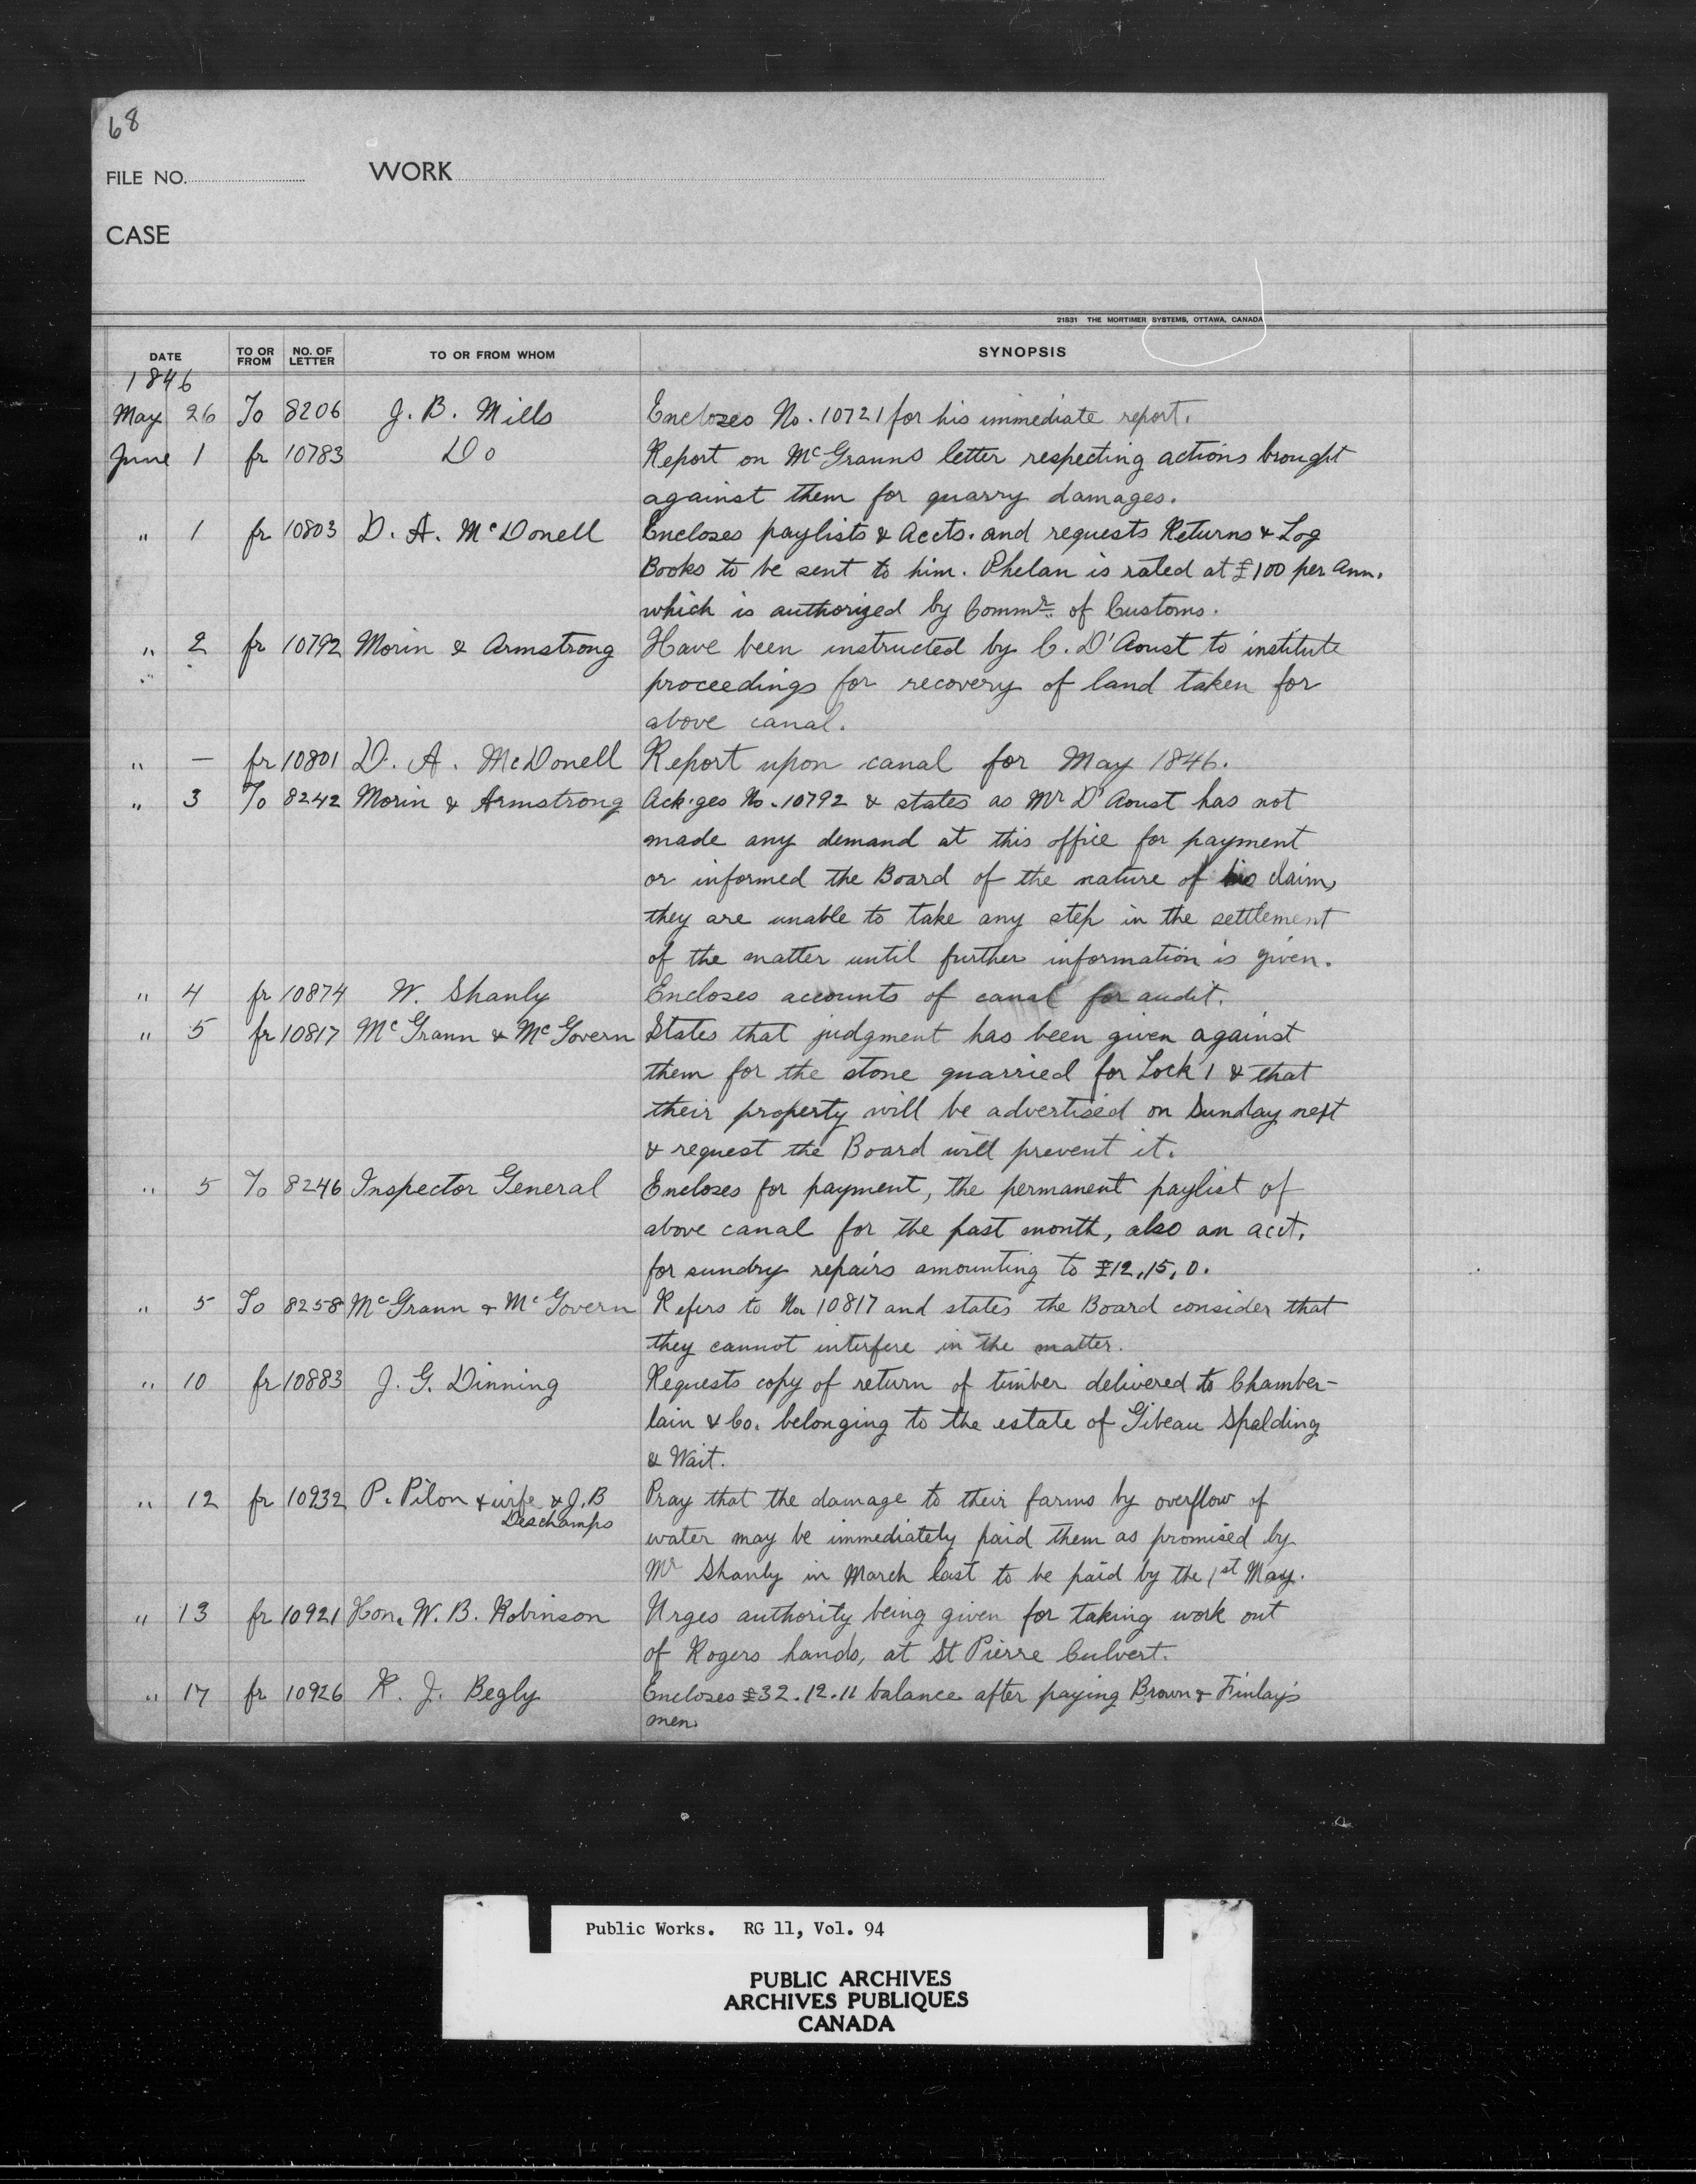 68
FILE NO. WORK
CASE
21531 THE MORTIMER SYSTEMS, OTTAWA, CANADA
DATE TO OR FROM NO. OF LETTER TO OR FROM WHOM SYNOPSIS
1846
May 26 To 8206 J. B. Mills Encloses No. 10721 for his immediate report.
June 1 fr 10783 Do Report on McGranns letter respecting actions brought
against them for quarry damages.
" 1 fr 10803 D. A. McDonell Encloses paylists & Accts. and requests Returns & Log
Books to be sent to him. Phelan is rated at £100 per Ann.
which is authorized by Commr. of Customs.
" 2 fr 10792 Morin & Armstrong Have been instructed by C. D'Aoust to institute
proceedings for recovery of land taken for
above canal.
" — fr 10801 D. A. McDonell Report upon canal for May 1846.
" 3 To 8242 Morin & Armstrong Ack.ges No. 10792 & states as Mr D'Aoust has not
made any demand at this office for payment
or informed the Board of the nature of his claim,
they are unable to take any step in the settlement
of the matter until further information is given.
" 4 fr 10874 W. Shanly Encloses accounts of canal for audit.
" 5 fr 10817 McGrann & McGovern States that judgment has been given against
them for the stone quarried for Lock 1 & that
their property will be advertised on Sunday next
& request the Board will prevent it.
" 5 To 8246 Inspector General Encloses for payment, the permanent paylist of
above canal for the past month, also an acct.
for sundry repairs amounting to £12,15,0.
" 5 To 8258 McGrann & McGovern Refers to No 10817 and states the Board consider that
they cannot interfere in the matter.
" 10 fr 10883 J. G. Dinning Requests copy of return of timber delivered to Chamber-
lain & Co. belonging to the estate of Gibeau Spalding
& Wait.
" 12 fr 10932 P. Pilon & wife & J. B Deschamps Pray that the damage to their farms by overflow of
water may be immediately paid them as promised by
Mr Shanly in March last to be paid by the 1st May.
" 13 fr 10921 Hon. W. B. Robinson Urges authority being given for taking work out
of Rogers hands, at St Pierre Culvert.
" 17 fr 10926 R. J. Begly Encloses £32.12.11 balance after paying Brown & Finlay's
men.
Public Works. RG 11, Vol. 94
PUBLIC ARCHIVES
ARCHIVES PUBLIQUES
CANADA